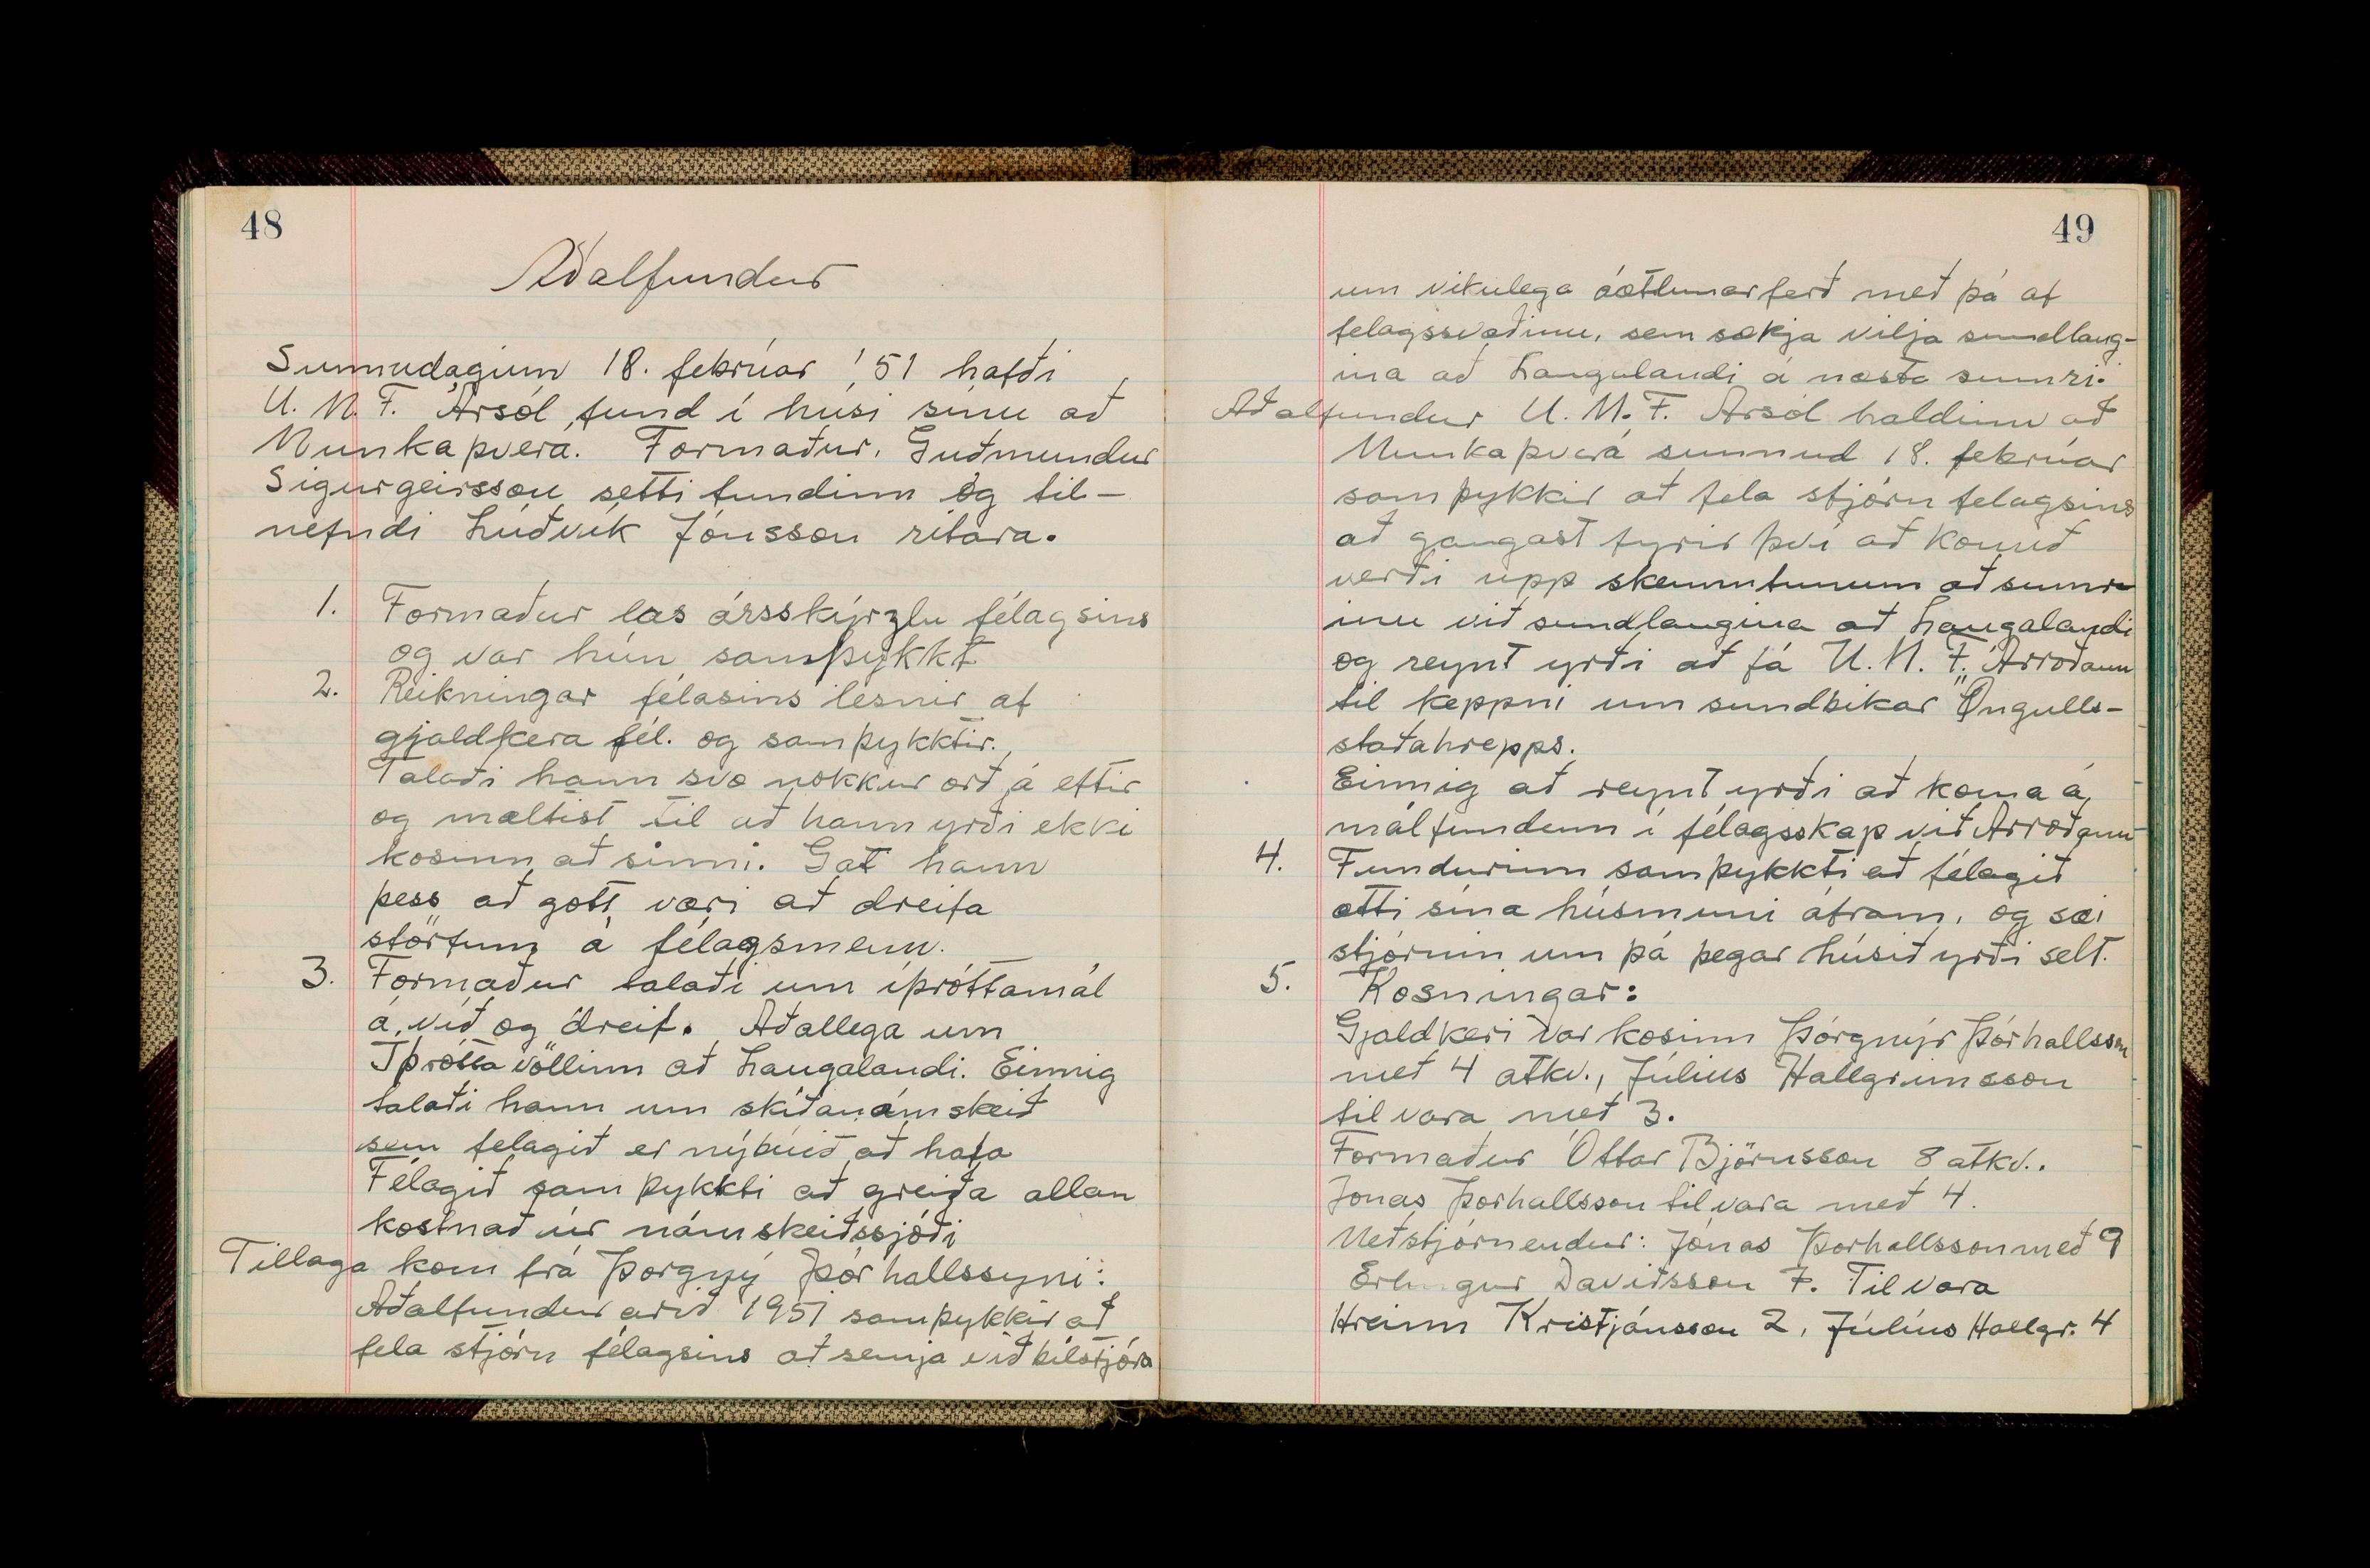 48
Aðalfundur
Sunnudaginn 18. febrúar '51 hafði
U.M.F. Ársól fund í húsi sínu að
Munkaþvera. Formaður, Guðmundur
Sigurgeirsson setti fundinn og til-
nefndi Lúðvík Jónsson ritara.
1. Formaður las ársskýrzlu félagsins
og var hún samþykkt
2. Reikningar félasins lesnir af
gjaldkera fél. og samþykktir.
Talaði hann svo nokkur orð á eftir
og mæltist til að hann yrði ekki
kosinn að sinni. Gat hann
þess að gott væri að dreifa
störfum á félagsmenn.
3. Formaður talaði um íþróttamál
á við og dreif. Aðallega um
Íþróttavöllinn að Laugalandi. Einnig
talaði hann um skíðanámskeið
sem felagið er nýbúið að hafa
Félagið samþykkti að greiða allan
kostnað úr námskeiðssjóði
Tillaga kom frá Þorgný Þórhallssyni:
Aðalfundur arið 1951 samþykkir að
fela stjórn félagsins að semja við bílstjóra
49
um vikulega áætlunarferð með þá af
felagssvæðinu, sem sækja vilja sundlaug-
ina að Laugalandi á næsta sumri.
Aðalfundur U.M.F. Ársól haldinn að
Munkaþverá sunnud 18. febrúar
samþykkir að fela stjórn felagsins
að gangast fyrir því að komið
verði upp skemmtunum að sumr-
inu við sundlaugina að Laugalandi
og reynt yrði að fá U.M.F. Árroðann
til keppni um sundbikar Öngulls-
staðahrepps.
Einnig að reynt yrði að koma á
málfundum í félagsskap við Arroðann
4. Fundurinn samþykkti að félagið
ætti sína húsmuni áfram, og sæi
stjórnin um þá þegar húsið yrði selt.
5. Kosningar:
Gjaldkeri var kosinn Þórgnýr Þórhallsson
með 4 atkv., Júlíus Hallgrimsson
til vara með 3.
Formaður Óttar Björnsson 8 atkv..
Jónas Þorhallsson til vara með 4.
Meðstjórnendur: Jónas Þorhallsson með 9
Erlingur Daviðsson 7. Til vara
Hreinn Kristjánsson 2, Júlíus Hallgr. 4